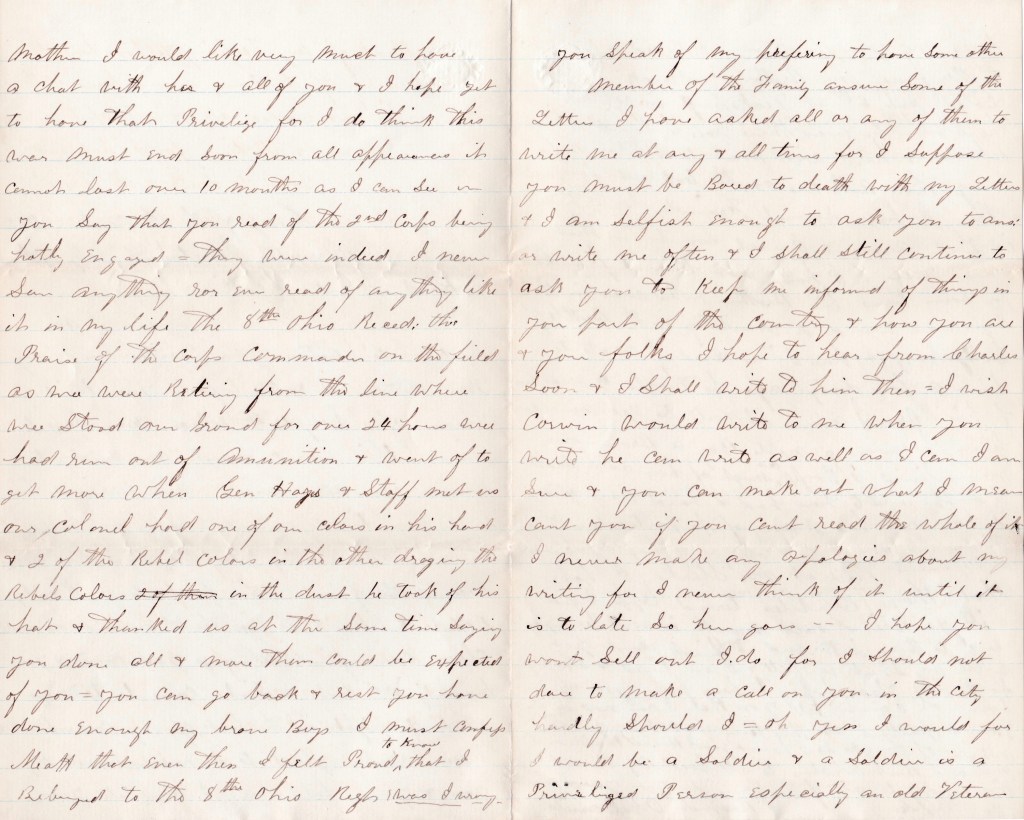 Mother I would like very much to have
a chat with her & all of you & I hope yet
to have that Privilige for I do think this
war must End Soon from all appearances it
cannot last over 10 months as I can See in
you Say that you read of the 2nd Corps being
hotly Engaged = they were indeed I never
Saw anything nor Ever read of anything like
it in my life the 8th Ohio Reced: the
Praise of the Corps Commander on the field
as wee were Retiring from the line where
wee Stood our Ground for over 24 hours wee
had run out of Amunition & went of to
get more when Gen Hays & Staff met us
our Colonel had one of our colors in his hand
& 2 of the Rebel Colors in the other draging the
Rebels Colors 2 of them in the dust he took of his
hat & thanked us at the Same time Saying
you done all & more than could be Expected
of you = you can go back & rest you have
done Enough my brave Boys I must confess
that Even then I felt Proud to Know that I
Belonged to the 8th Ohio Regt was I wrong
you Speak of my prefering to have Some other
Member of the Family answer Some of the
Letters I have asked all or any of them to
write me at any & all times for I Suppose
you must be Bored to death with my Letters
& I am Selfish Enough to ask you to ans:
or write me often & I Shall Still Continue to
ask you to Keep me informed of things in
you part of the country & how you are
& your folks I hope to hear from Charles
Soon & I Shall write to him then = I wish
Corwin would write to me when you
write he can write as well as I can I am
Sure & you can make out what I mean
cant you if you cant read the whole of it
I never make any apologies about my
writing for I never think of it until it
is to late So here goes -- I hope you
wont Sell out I do for I Should not
dare to make a call on you in the City
hardly Should I = oh yess I would for
I would be a Soldier & a Soldier is a
Priviliged Person Especially an old Veteran